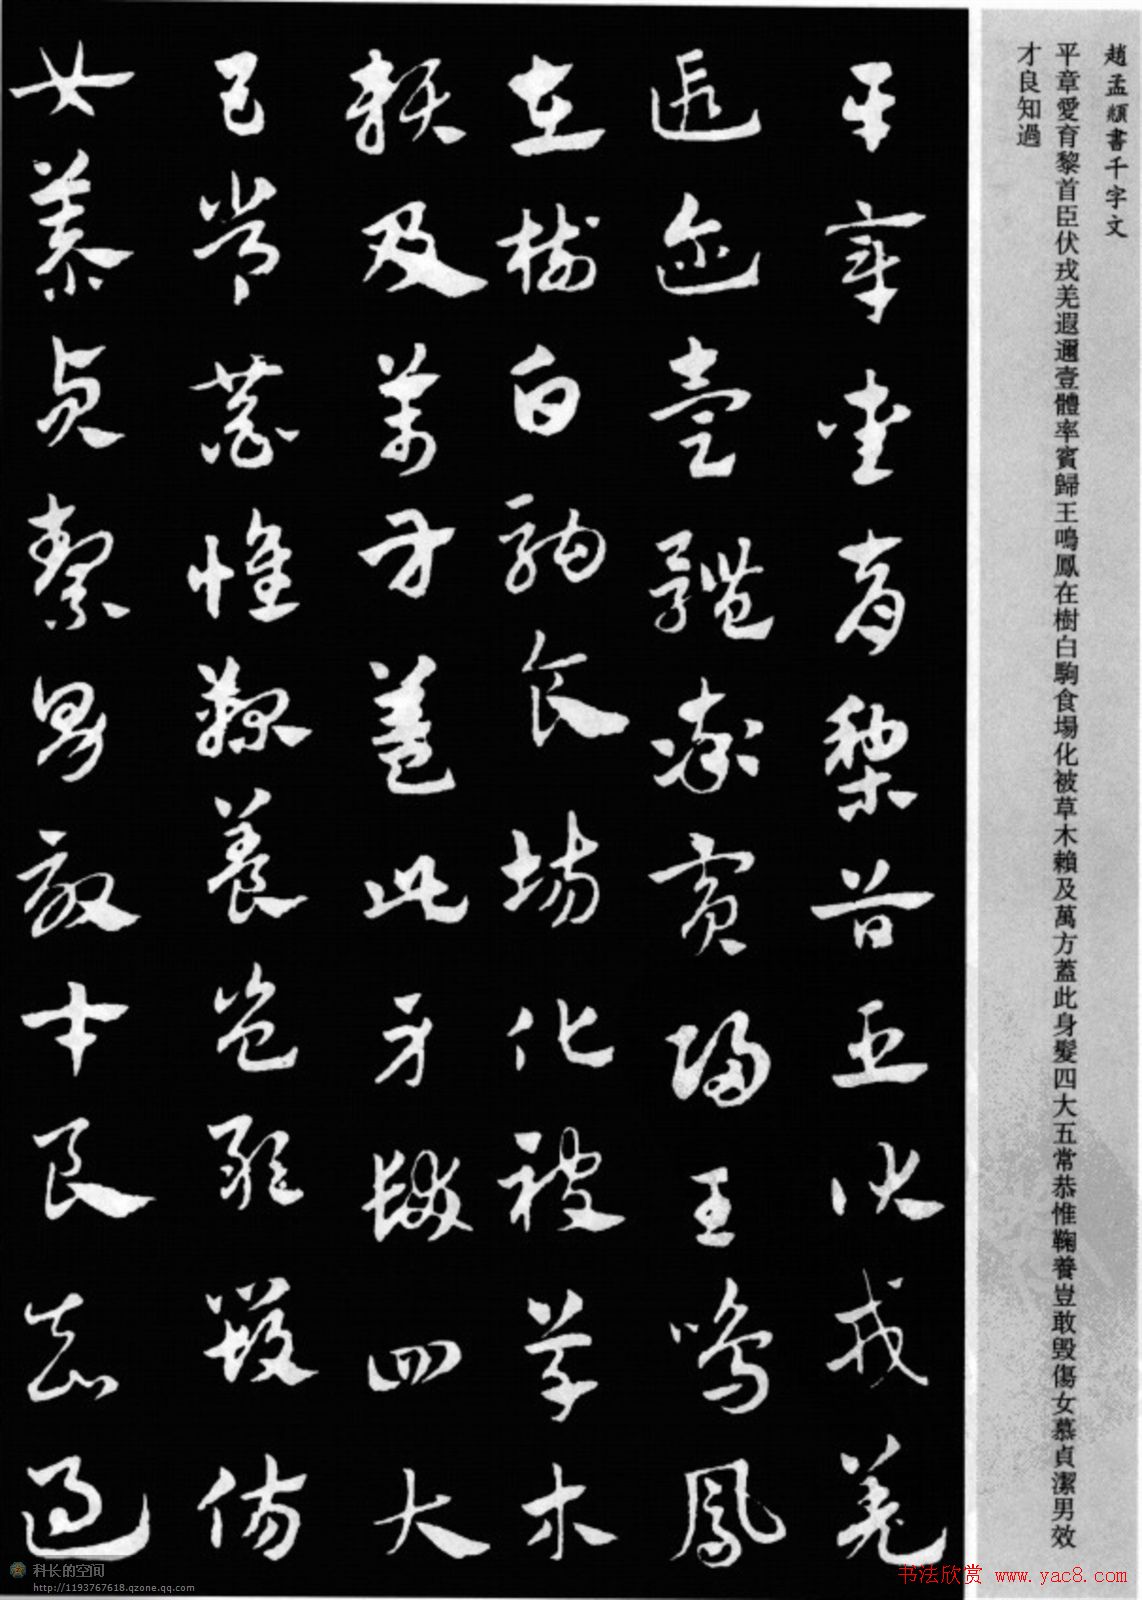 趙孟頫書千字文
平章愛育黎首臣伏戎羌遐邇壹體率賓歸王鳴鳳在樹白駒食場化被草木賴及萬方蓋此身髮四大五常恭惟鞠養豈敢毀傷女慕貞潔男效
才良知過
平章愛育黎首臣伏戎羌
遐邇壹體率賓歸王鳴鳳
在樹白駒食場化被草木
賴及萬方蓋此身髮四大
五常恭惟鞠養豈敢毀傷
女慕貞潔男效才良知過
科长的空间
http://1193767618.qzone.qq.com
书法欣赏 www.yac8.com